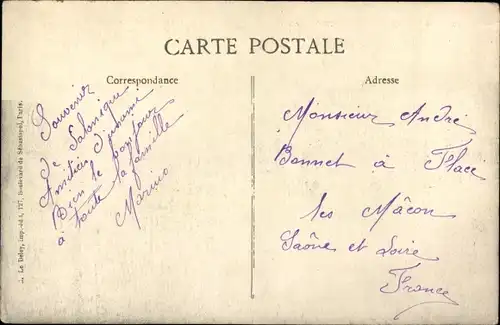 CARTE POSTALE
Correspondance
Adresse
Souvenir
de Salonique
Amitiés d'un ami
Bien le bonjour
à toute la famille
Marino
Monsieur André
Bonnet à Flacé
les Mâcon
Saône et Loire
France
Le Deley, imp.-éd., 127, Boulevard de Sébastopol, Paris.